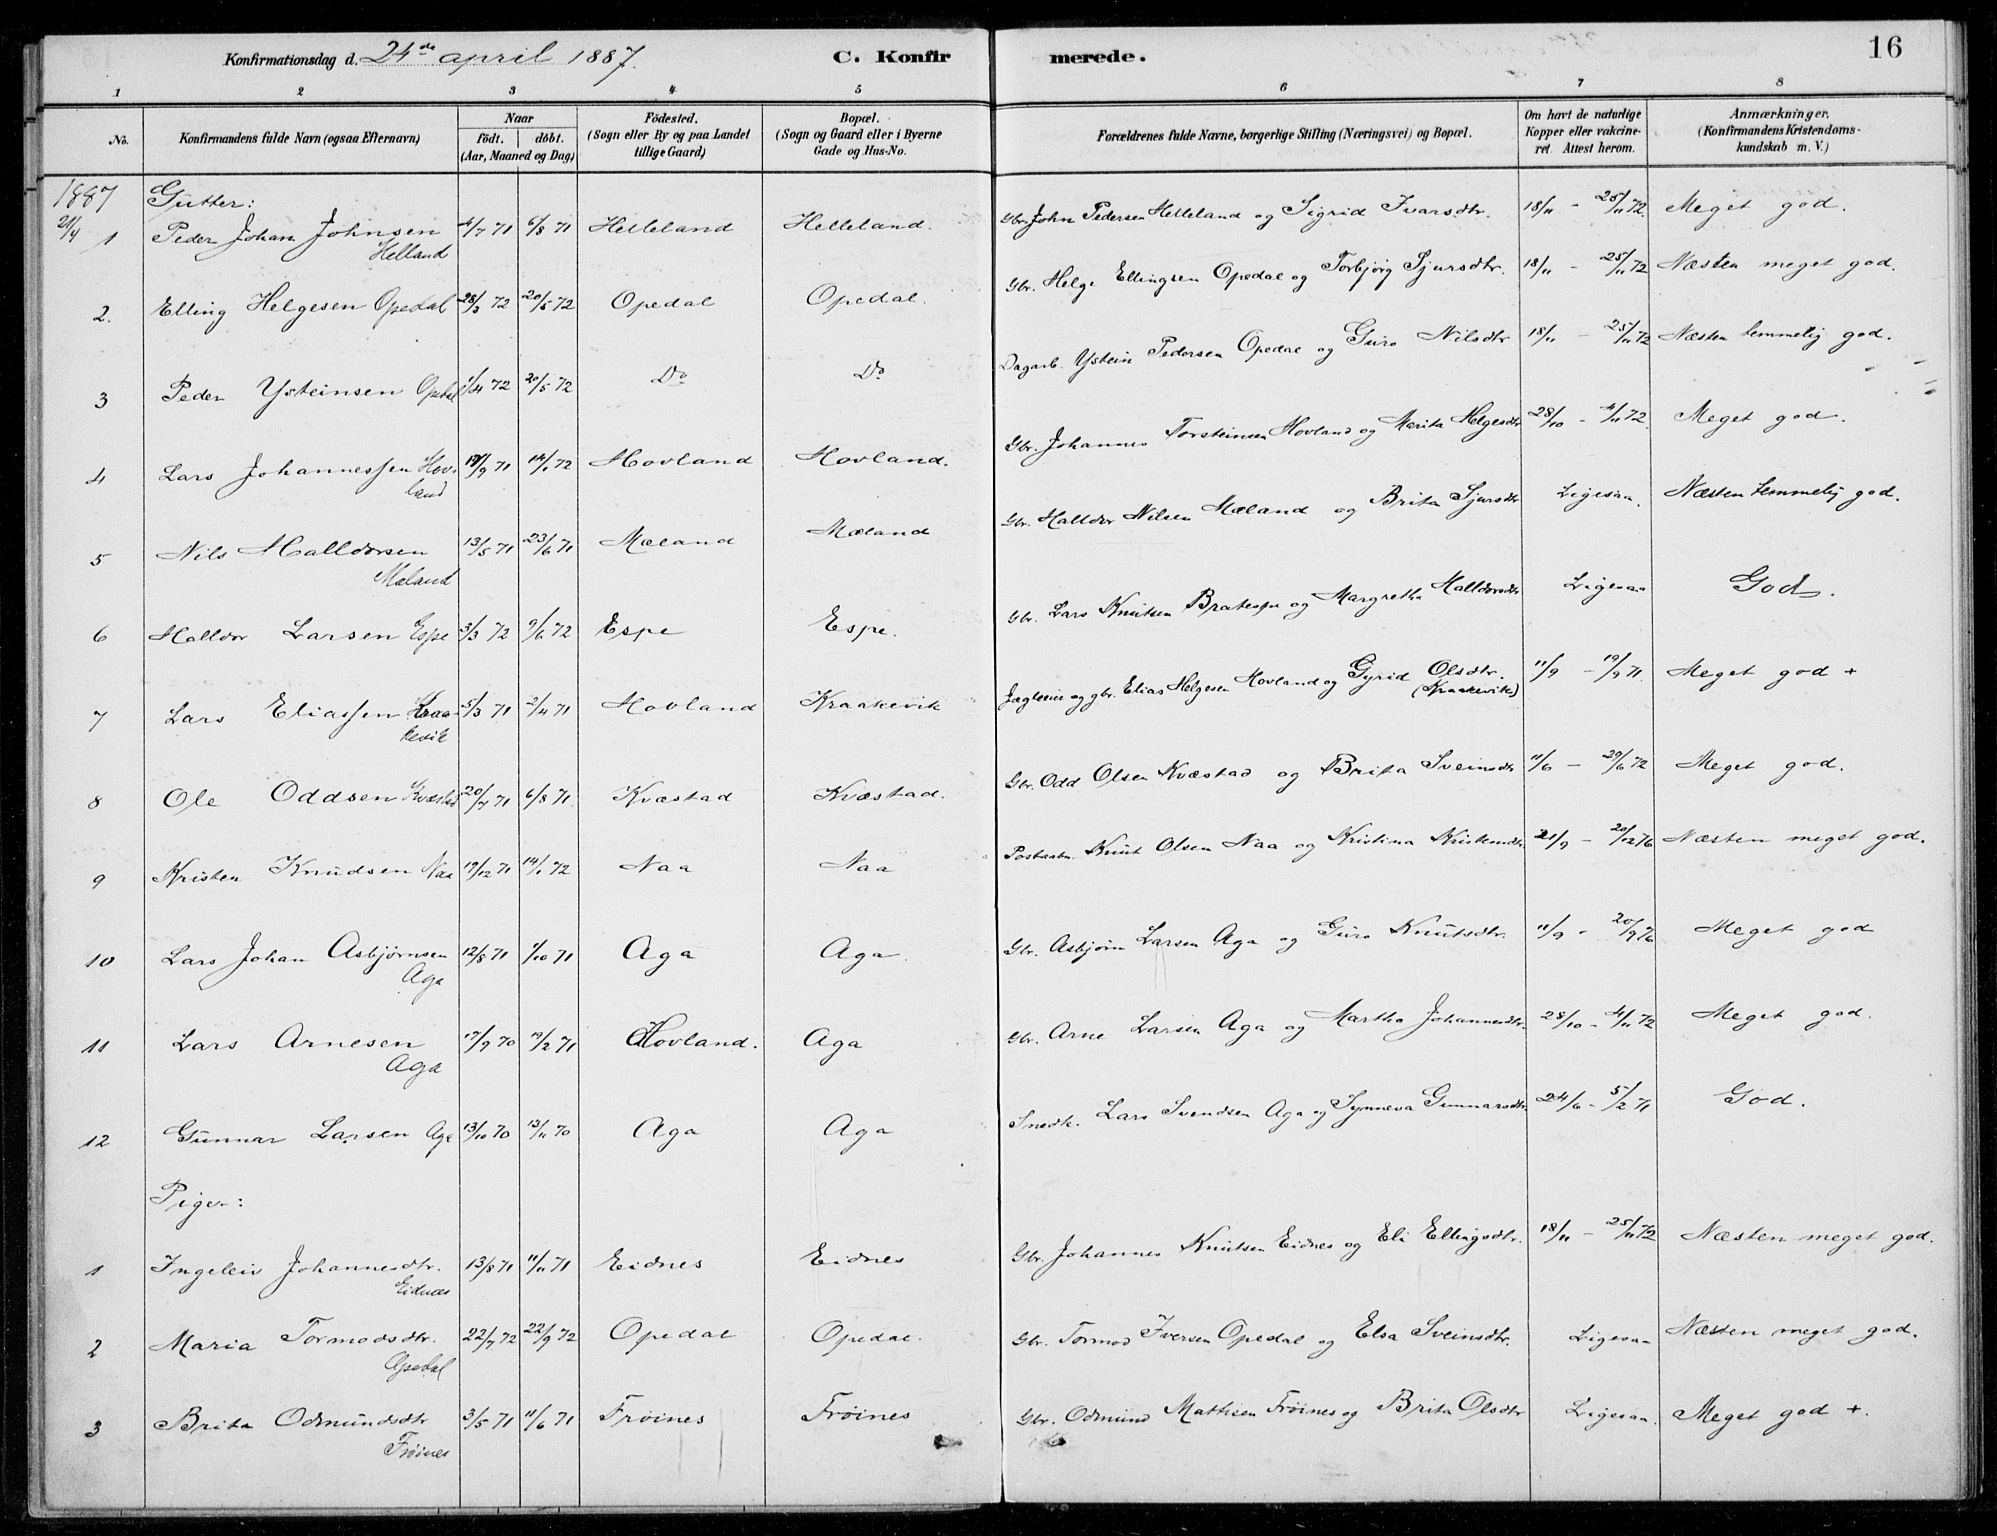 Konfirmationsdag d. 24de april 1887. C. Konfirmerede. 16
1 2 3 4 5 6 7 8
No. Konfirmandens fulde Navn (ogsaa Efternavn) Naar födt. döbt. (Aar, Maaned og Dag) Födested. (Sogn eller By og paa Landet tillige Gaard) Bopæl. (Sogn og Gaard eller i Byerne Gade og Hus-No. Forældrenes fulde Navne, borgerlige Stilling (Næringsvei) og Bopæl. Om havt de naturlige Kopper eller vakcineret. Attest herom. Anmærkninger. (Konfirmandens Kristendomskundskab m. V.)
1887 Gutter:
24/4 1 Peder Johan Johnsen Helland 4/7 71 6/8 71 Helleland Helleland. Gbr. John Pedersen Helleland og Sigrid Ivarsdtr. 18/11 - 25/11 72. Meget god.
2. Elling Helgesen Opedal 28/3 72 20/5 72 Opedal Opedal. Gbr. Helge Ellingsen Opedal og Torbjørg Sjursdtr. 18/11 - 25/11 72 Næsten meget god.
3 Peder Ysteinsen Opedal 1/4 72 20/5 72 Do Do Dagarb. Ystein Pedersen Opedal og Guro Nilsdtr 18/11 - 25/11 72 Næsten temmelig god.
4 Lars Johannessen Hovland /9 71 14/1 72 Hovland Hovland. Gbr. Johannes Torsteinsen Hovland og Marita Helgesdtr 28/10 - 4/11 72. Meget god.
5 Nils Halldorsen Mæland 13/5 71 23/6 71 Mæland Mæland Gbr. Halldor Nilsen Mæland og Brita Sjursdtr Ligesaa. Næsten temmelig god.
6 Halldor Larsen Espe 3/3 72 9/6 72 Espe Espe. Gbr. Lars Knutsen Bratespe og Margretha Halldorsdtr Ligesaa God.
7 Lars Eliassen Kraakevik 5/3 71 2/4 71 Hovland Kraakevik og gbr. Elias Helgesen Hovland og Gyrid Olsdtr. (Kraakevik) 11/9 - 19/9 71. Meget god +
8 Ole Oddsen Kvæstad 20/7 71 6/8 71. Kvæstad Kvæstad. Gbr. Odd Olsen Kvæstad og Brita Sveinsdtr 11/6 - 29/6 72 Meget god.
9 Kristen Knudsen Naa 19/12 71 14/1 72 Naa Naa Postaabn. Knut Olsen Naa og Kristina Kristensdtr 21/9 - 20/12 76 Næsten meget god.
10 Lars Johan Asbjørnsen Aga 12/8 71 1/10 71 Aga Aga. Gbr. Asbjørn Larsen Aga og Guro Knutsdtr. 11/9 - 20/9 76 Meget god
11 Lars Arnesen Aga 17/9 70 19/2 71 Hovland. Aga Gbr. Arne Larsen Aga og Martha Johannesdtr. 28/10 - 4/11 72 Meget god.
12 Gunnar Larsen Aga 13/10 70 13/11 70 Aga Aga Snedk. Lars Svendsen Aga og Synneva Gunnarsdtr 24/6 - 5/2 71 God.
Piger:
1 Ingeleiv Johannesdtr. Eidnes 13/8 71 11/11 71 Eidnes Eidnes Gbr. Johannes Knutsen Eidnes og Eli Ellingsdtr. 18/11 - 25/11 72 Næsten meget god.
2 Maria Tormodsdtr. Opedal 22/7 72 22/9 72 Opedal Opedal. Gbr. Tormod Iversen Opedal og Elsa Sveinsdtr. Ligesaa Næsten meget god.
3 Brita Odmundsdtr Frøines 3/5 71 11/6 71 Frøines Frøines Gbr. Odmund Mathisen Frøines og Brita Olsdtr Ligesaa. Meget god +.